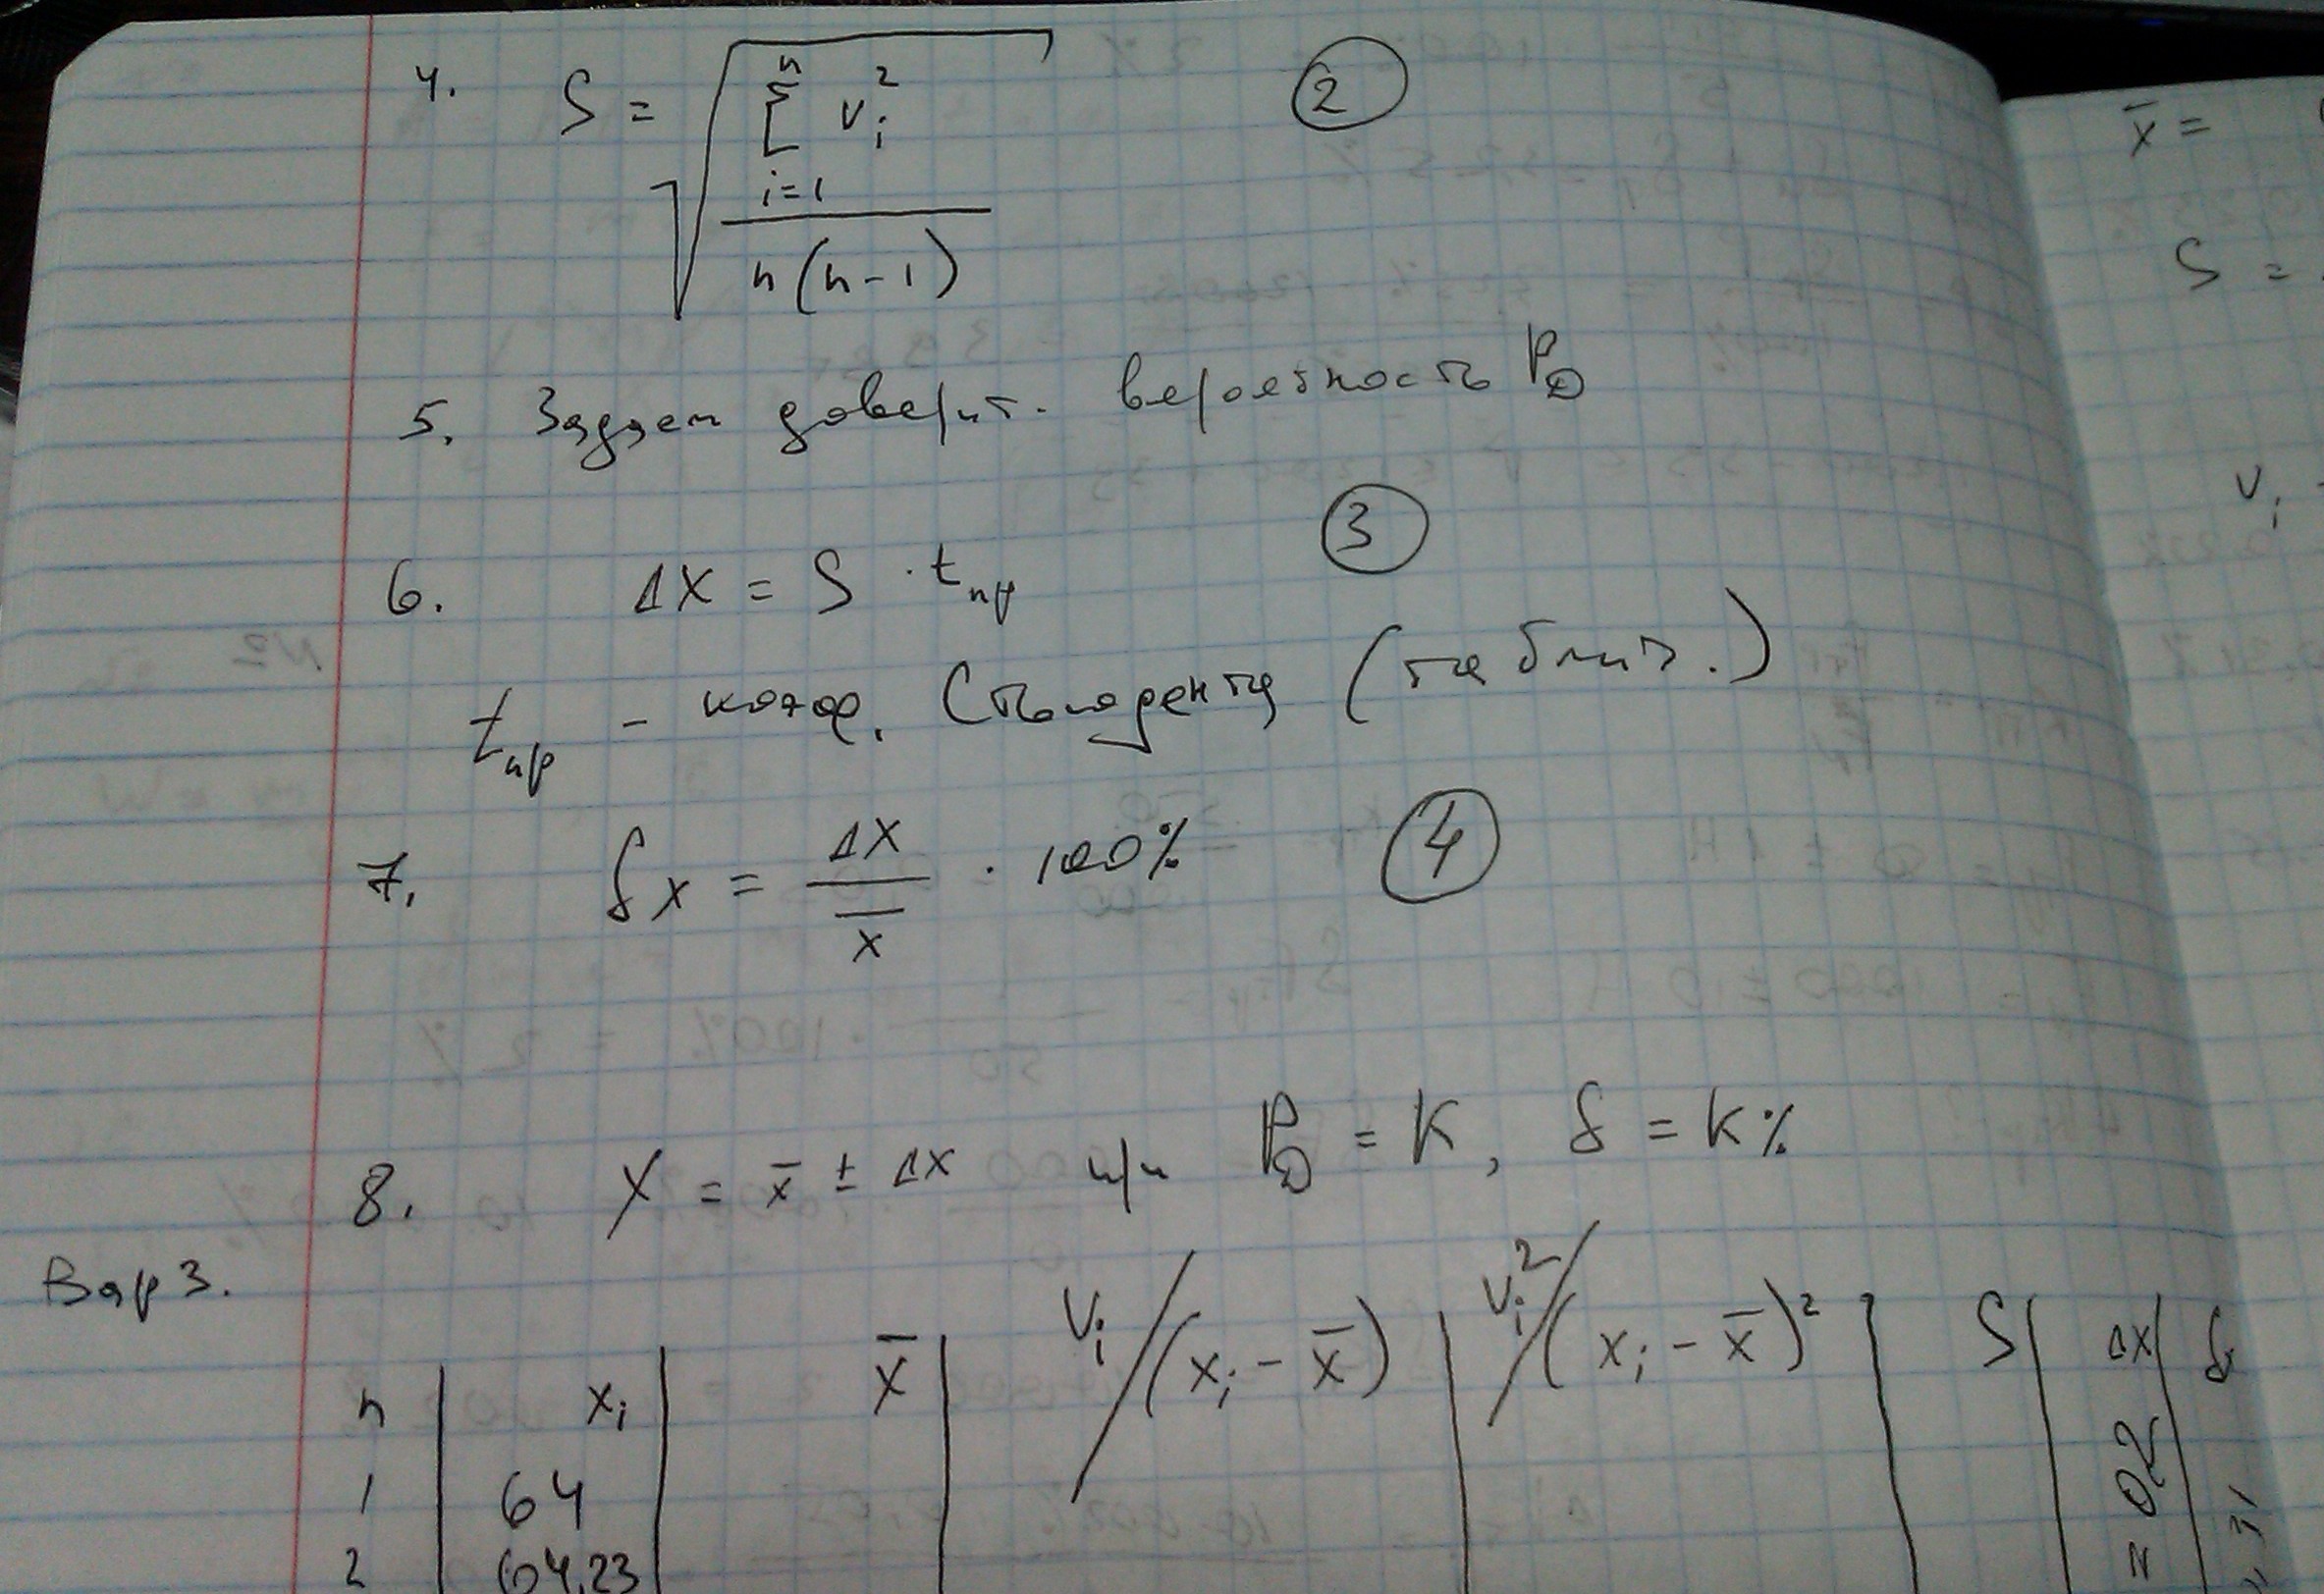 4. S = √(Σ_{i=1}^{n} v_i² / n(n-1)) ②
5. Задаем доверит. вероятность P_D
6. ΔX = S · t_пр ③
t_пр - коэф. Стьюдента (таблиц.)
7. δx = ΔX / x̄ · 100% ④
8. X = x̄ ± ΔX при P_D = K, δ = K%
Вар 3.
n | x_i | x̄ | v_i / (x_i - x̄) | v_i² / (x_i - x̄)² | S | ΔX | δ
1 | 64
2 | 64,23
x̄ =
S =
v_i